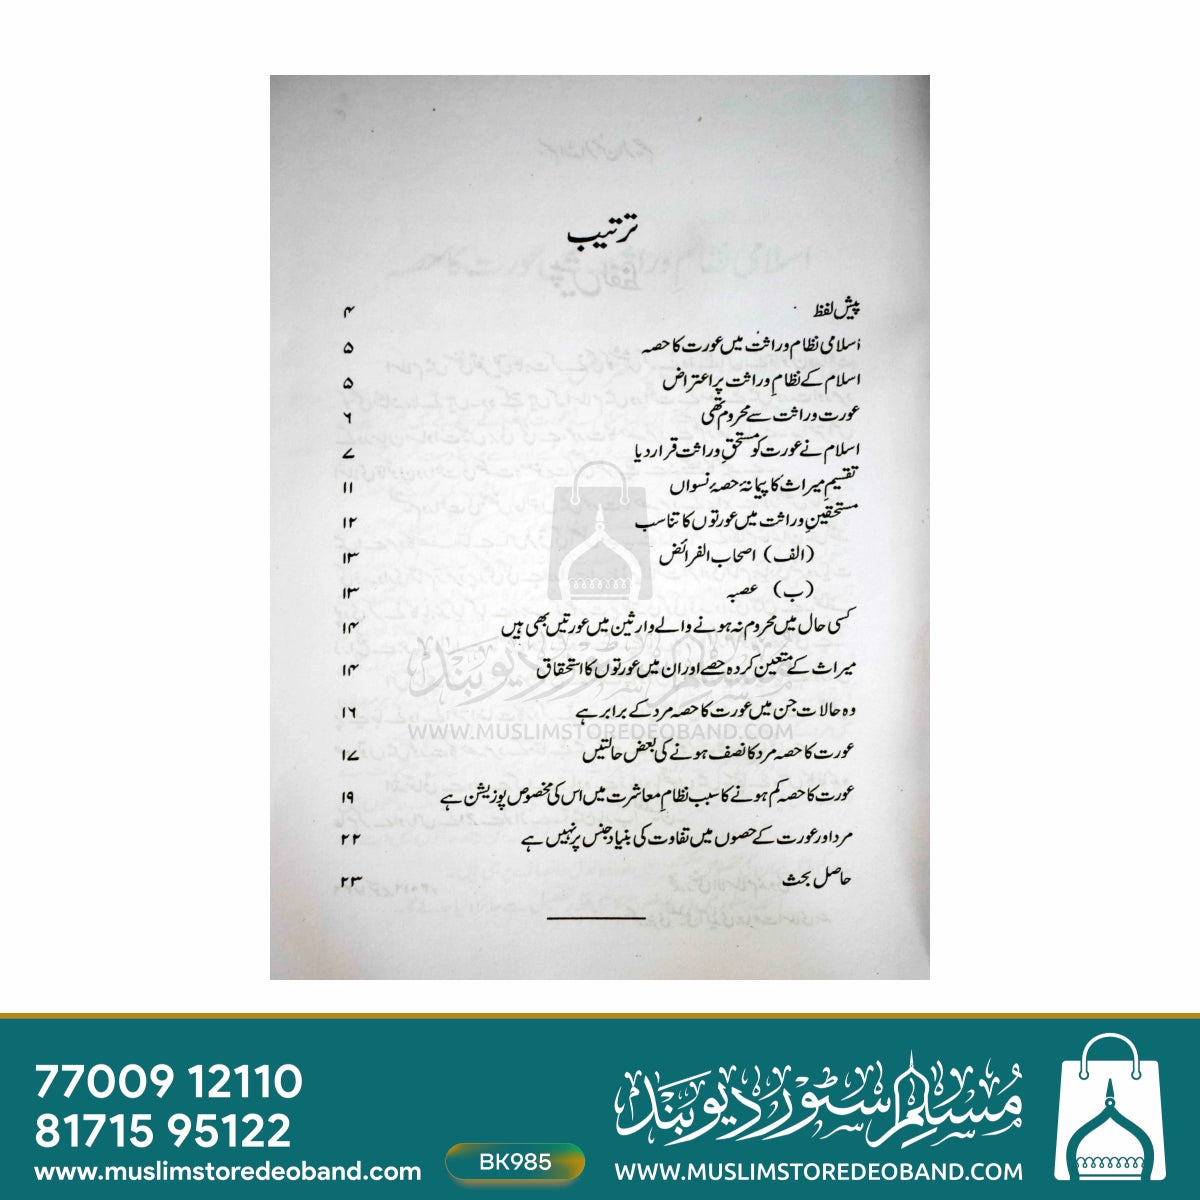 ترتیب
پیش لفظ ۴
اسلامی نظام وراثت میں عورت کا حصہ ۵
اسلام کے نظامِ وراثت پر اعتراض ۵
عورت وراثت سے محروم تھی ۶
اسلام نے عورت کو مستحقِ وراثت قرار دیا ۷
تقسیمِ میراث کا پیمانہ حصۂ نسواں ۱۱
مستحقینِ وراثت میں عورتوں کا تناسب ۱۲
(الف) اصحاب الفرائض ۱۳
(ب) عصبہ ۱۳
کسی حال میں محروم نہ ہونے والے وارثین میں عورتیں بھی ہیں ۱۴
میراث کے متعین کردہ حصے اور ان میں عورتوں کا استحقاق ۱۴
وہ حالات جن میں عورت کا حصہ مرد کے برابر ہے ۱۶
عورت کا حصہ مرد کا نصف ہونے کی بعض حالتیں ۱۷
عورت کا حصہ کم ہونے کا سبب نظامِ معاشرت میں اس کی مخصوص پوزیشن ہے ۱۹
مرد اور عورت کے حصوں میں تفاوت کی بنیاد جنس پر نہیں ہے ۲۲
حاصل بحث ۲۳
مسلم سٹور دیوبند
WWW.MUSLIMSTOREDEOBAND.COM
77009 12110
81715 95122
www.muslimstoredeoband.com
BK985
مسلم سٹور دیوبند
WWW.MUSLIMSTOREDEOBAND.COM